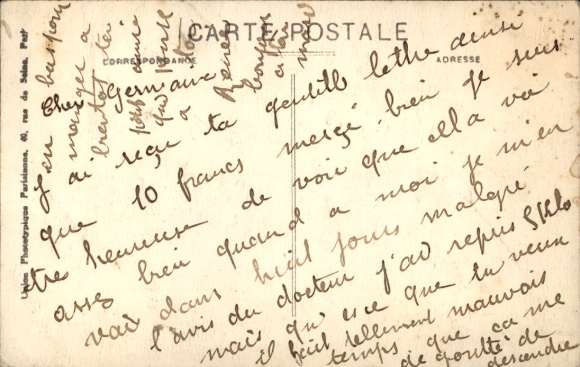 CARTE POSTALE
CORRESPONDANCE
ADRESSE
Union Phototypique Parisienne, 40, rue de Seine, Par
Cher Germaine
ai reçu ta gentille lettre ainsi
que 10 francs merçi bien je suis
tre heureuse de voie que ella va
assez bien quand a moi je m'en
vait dans huit jours malgré
l'avis du docteur j'ai repris 5 Kilo
mais qu'esce que tu veux
il fait tellement mauvais
temps que ça me
de goutte de
descendre
j'en
manger a
bientot
bonjour
a toi